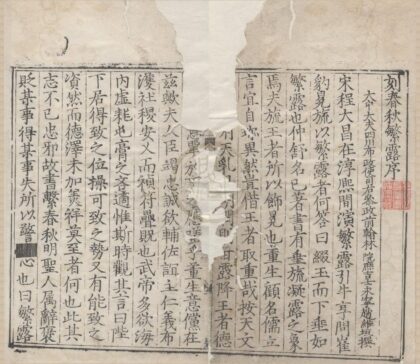 刻春秋繁露序
宋程大昌在淳熙間演繁露引牛亨問崔
豹冕旒以繁露者何答曰綴玉而下垂如
繁露也仲舒名已著書有垂旒凝露之象
焉夫旒王者所以飾冕也董生顧名儒立
言宜自
王者取重哉按天文
甘露降王者德
子重生意黨在
茲歟天人臣謁忠誠欲輔佐誼主仁義布
濩社稷安又而禎符疊既也武帝多欲海
內虛耗也膏之吝適惟斯時觀其言曰陛
下居得致之位操可致之勢又有能致之
資然而德澤未加羙祥莫至者何也此其
志不已忠邪故書繫春秋明聖人属辭褒
貶某事得某事失所以警
心也曰繁露